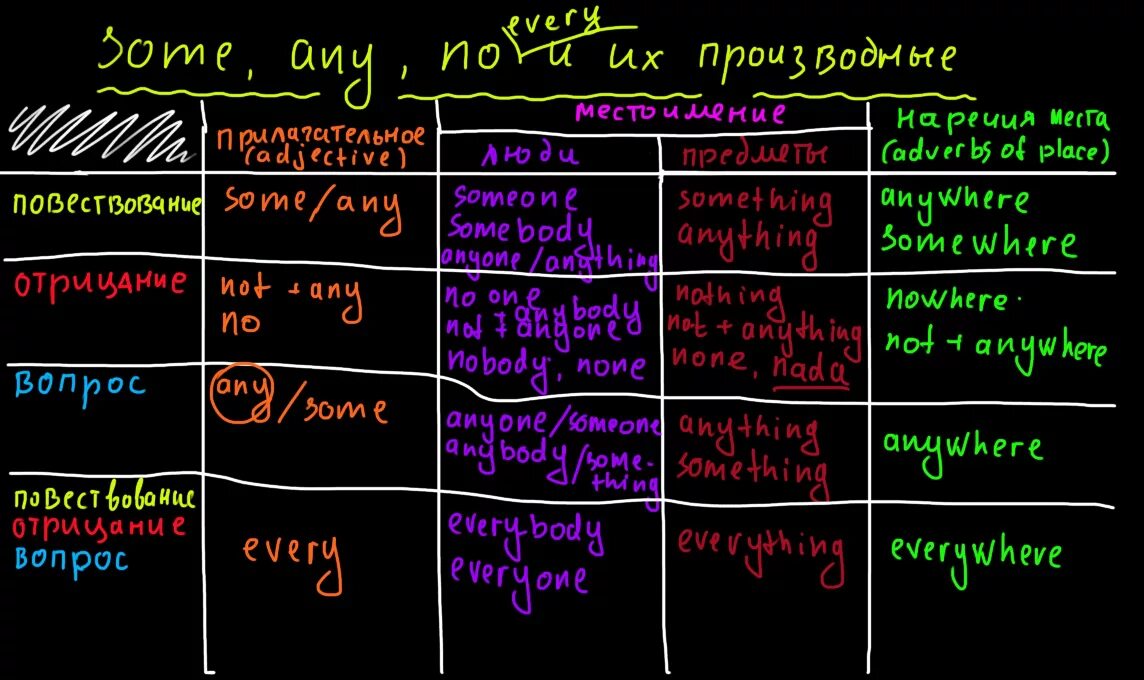 every
some, any, no и их производные
местоимение
прилагательное
(adjective)
люди
предметы
наречия места
(adverbs of place)
повествование
some/any
someone
somebody
anyone/anything
something
anything
anywhere
somewhere
отрицание
not + any
no
no one
not + anybody
anyone
nobody, none
nothing
not + anything
none, nada
nowhere.
not + anywhere
вопрос
any/some
anyone/someone
anybody/some-
thing
anything
something
anywhere
повествование
отрицание
вопрос
every
everybody
everyone
everything
everywhere